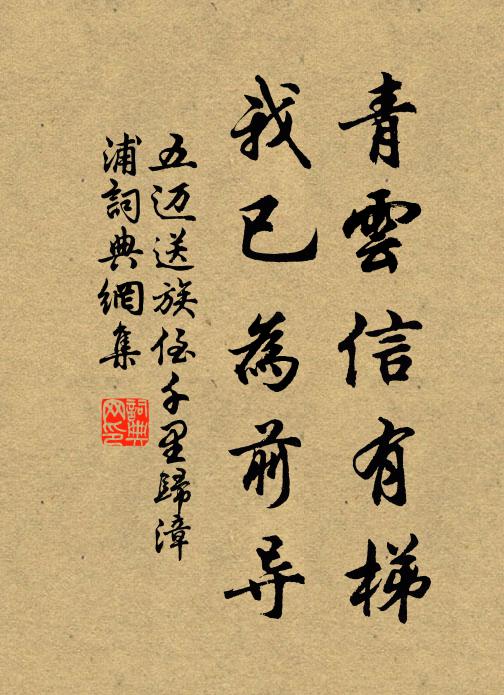 青雲信有梯
我已為前导
五迈送族侄千里歸漳
浦詞典網集
詞典网印